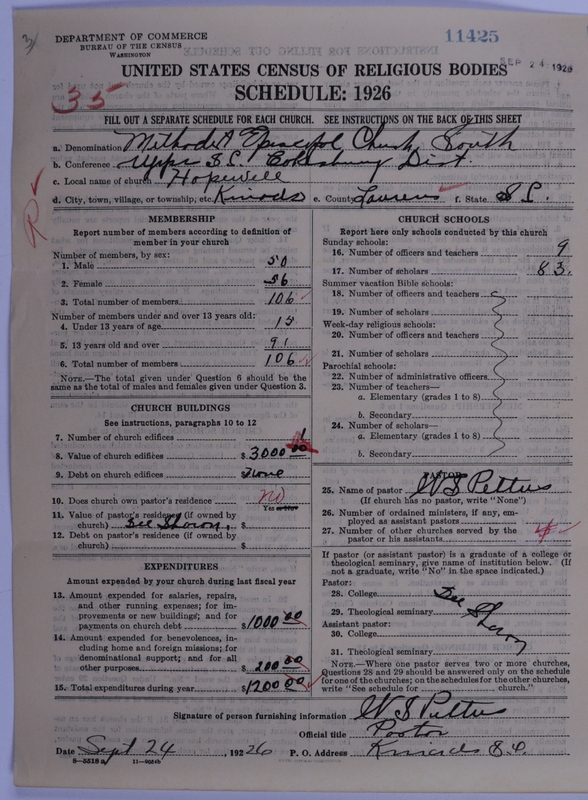 DEPARTMENT OF COMMERCE
BUREAU OF THE CENSUS
WASHINGTON
11425
SEP 24 1926
UNITED STATES CENSUS OF RELIGIOUS BODIES
SCHEDULE: 1926
35
FILL OUT A SEPARATE SCHEDULE FOR EACH CHURCH. SEE INSTRUCTIONS ON THE BACK OF THIS SHEET
a. Denomination Methodist Episcopal Church, South
b. Conference Upper S.C. Cokesbury Dist.
c. Local name of church Hopewell
d. City, town, village, or township, etc. Kinards e. County Laurens f. State S.C.
MEMBERSHIP
Report number of members according to definition of
member in your church
Number of members, by sex:
1. Male 50
2. Female 56
3. Total number of members 106
Number of members under and over 13 years old:
4. Under 13 years of age 15
5. 13 years old and over 91
6. Total number of members 106
NOTE.—The total given under Question 6 should be the
same as the total of males and females given under Question 3.
CHURCH BUILDINGS
See instructions, paragraphs 10 to 12
7. Number of church edifices 1
8. Value of church edifices $ 3000 00
9. Debt on church edifices $ None
10. Does church own pastor's residence no
Yes or No
11. Value of pastor's residence (if owned by
church) See Sharon. $
12. Debt on pastor's residence (if owned by
church) $
EXPENDITURES
Amount expended by your church during last fiscal year
13. Amount expended for salaries, repairs,
and other running expenses; for im-
provements or new buildings; and for
payments on church debt $ 1000 00
14. Amount expended for benevolences, in-
cluding home and foreign missions; for
denominational support; and for all
other purposes $ 200 00
15. Total expenditures during year $ 1200 00
CHURCH SCHOOLS
Report here only schools conducted by this church
Sunday schools:
16. Number of officers and teachers 9
17. Number of scholars 83.
Summer vacation Bible schools:
18. Number of officers and teachers
19. Number of scholars
Week-day religious schools:
20. Number of officers and teachers
21. Number of scholars
Parochial schools:
22. Number of administrative officers
23. Number of teachers—
a. Elementary (grades 1 to 8)
b. Secondary
24. Number of scholars—
a. Elementary (grades 1 to 8)
b. Secondary
PASTOR
25. Name of pastor W S Pettus
(If church has no pastor, write "None")
26. Number of ordained ministers, if any, em-
ployed as assistant pastors
27. Number of other churches served by the
pastor or his assistants 4
If pastor (or assistant pastor) is a graduate of a college or
theological seminary, give name of institution below. (If
not a graduate, write "No" in the space indicated.)
Pastor:
28. College See Sharon
29. Theological seminary
Assistant pastor:
30. College
31. Theological seminary
NOTE.—Where one pastor serves two or more churches,
Questions 28 and 29 should be answered only on the schedule
for one of the churches; on the schedules for the other churches,
write "See schedule for church."
Signature of person furnishing information W S Pettus
Official title Pastor
Date Sept 24, 1926 P. O. Address Kinards S.C.
8—5518 a 11—9034b